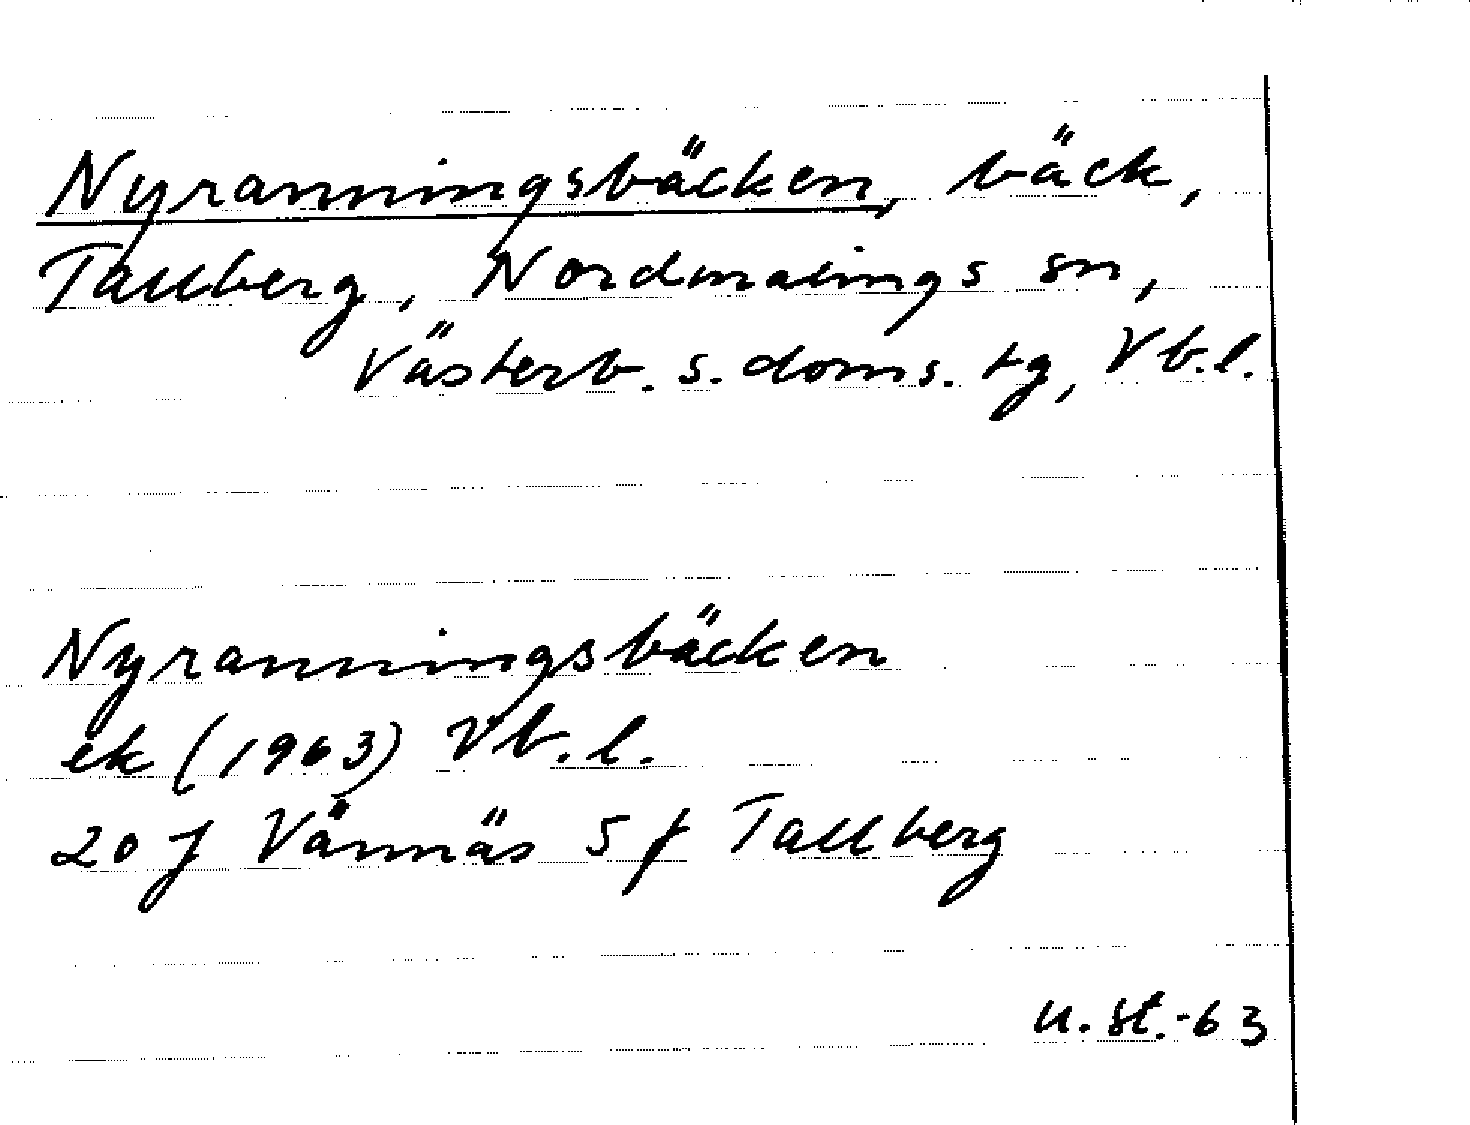 Nyranningsbäcken, bäck,
Tallberg, Nordmalings sn,
Västerb. s. doms. tg, Vb.l.
Nyranningsbäcken
ek (1963) Vb.l.
20 J Vännäs 5 f Tallberg
u. st. -63